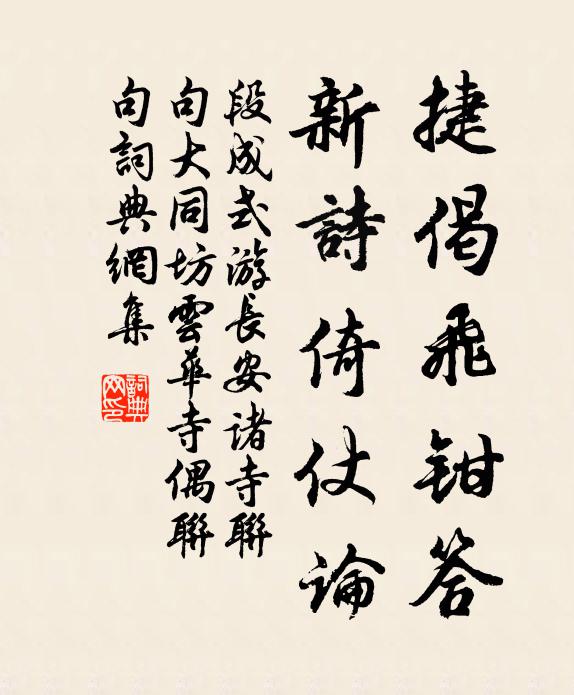 捷偈飛鉗答
新詩倚仗論
段成式游長安諸寺聯
句大同坊雲華寺偶聯
句詞典網集
詞典网印